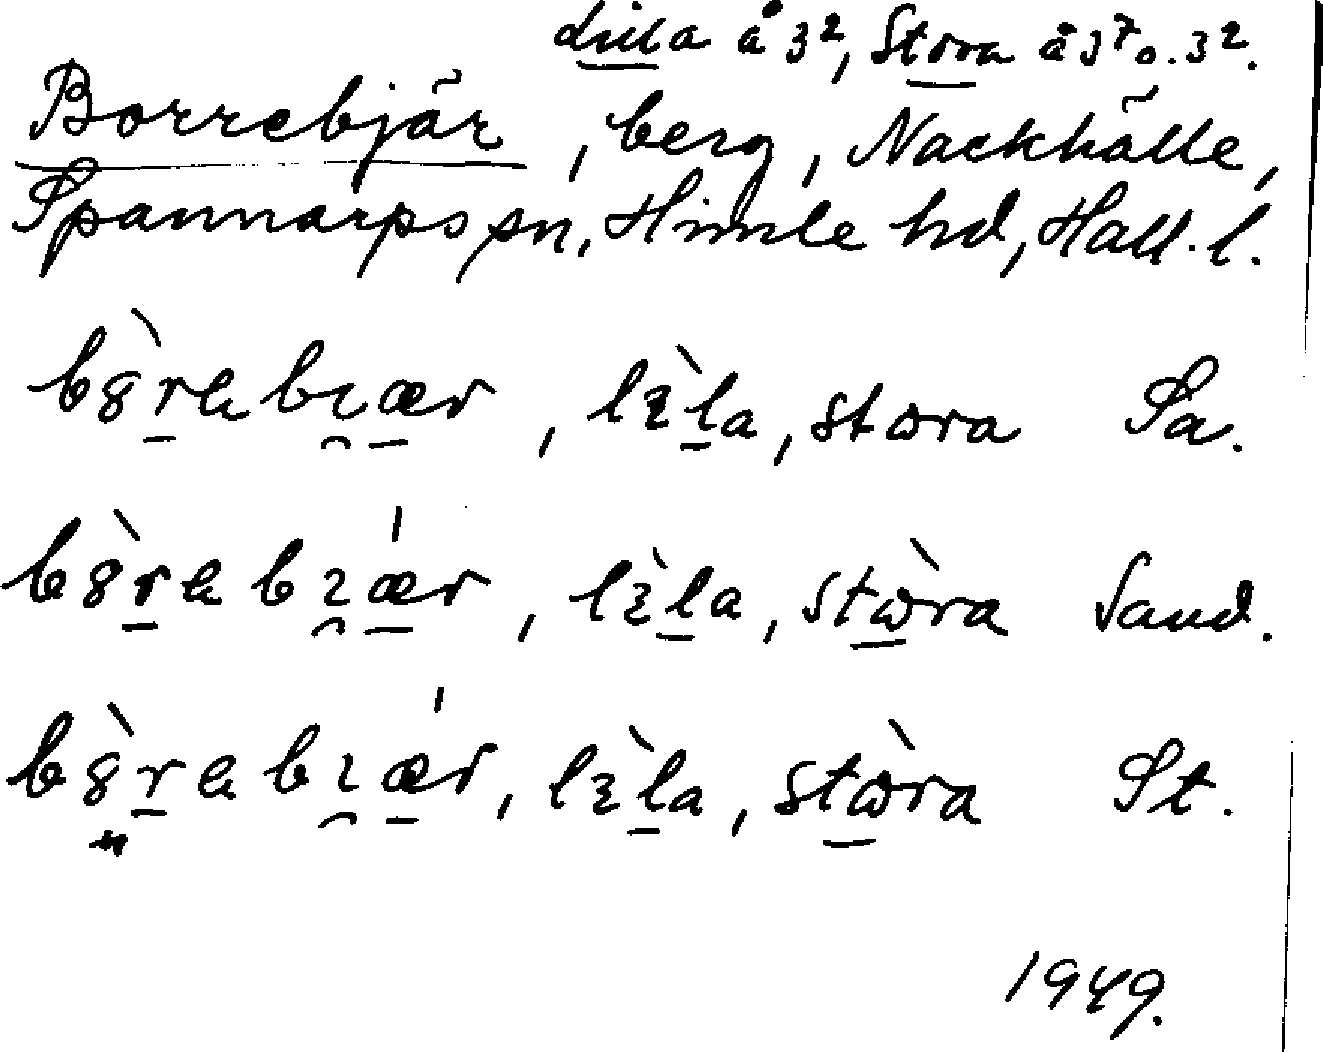 Lilla å 3², Stora å 3⁷ o. 3².
Borrebjär, berg, Nackhälle,
Spannarps sn, Himle hd, Hall. l.
bȣ̀rabɿær, lɛ̀la, stɷra Sa.
bȣ̀rabɿǽr, lɛ̀la, stɷ̀ra Sand.
bȣ̀rabɿǽr, lɛ̀la, stɷ̀ra St.
1949.